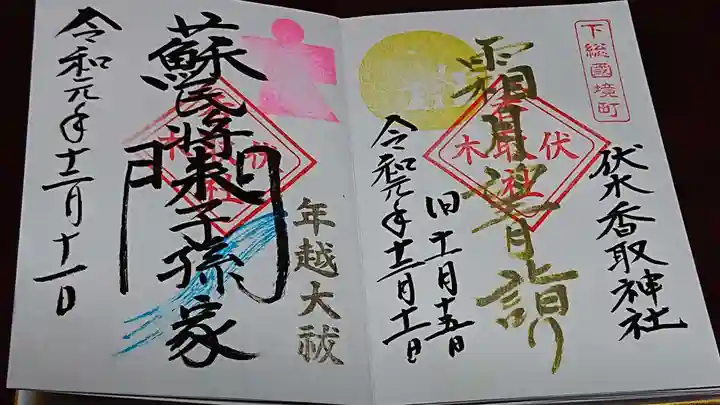 下総國境町
伏木香取神社
霜月望月詣
旧十一月十五日
令和元年十二月十一日
伏木
香取
社
年越大祓
蘇民将来子孫家
門
伏木
社
令和元年十二月十一日